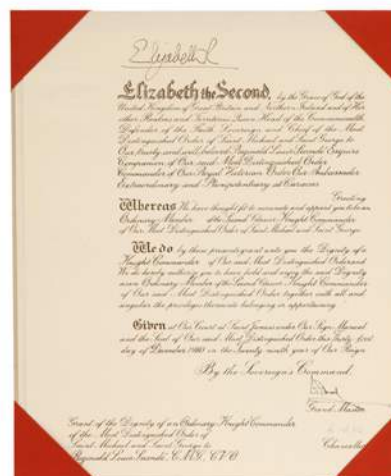 Elizabeth R
Elizabeth the Second, by the Grace of God of the
United Kingdom of Great Britain and Northern Ireland and of Her
other Realms and Territories Queen, Head of the Commonwealth,
Defender of the Faith, Sovereign and Chief of the Most
Distinguished Order of Saint Michael and Saint George to
Our trusty and well beloved Reginald Louis Secondé Esquire
Companion of Our said Most Distinguished Order
Commander of Our Royal Victorian Order Our Ambassador
Extraordinary and Plenipotentiary at Caracas
Greeting
Whereas We have thought fit to nominate and appoint you to be an
Ordinary Member of the Second Class or Knight Commander
of Our Most Distinguished Order of Saint Michael and Saint George
We do by these presents grant unto you the Dignity of a
Knight Commander of Our said Most Distinguished Order and
We do hereby authorise you to have hold and enjoy the said Dignity
as an Ordinary Member of the Second Class or Knight Commander
of Our said Most Distinguished Order together with all and
singular the privileges thereunto belonging or appertaining
Given at Our Court at Saint James's under Our Sign Manual
and the Seal of Our said Most Distinguished Order this Thirty first
day of December 1980 in the Twenty ninth year of Our Reign
By the Sovereign's Command,
Grand Master
Grant of the Dignity of an Ordinary Knight Commander
of the Most Distinguished Order of
Saint Michael and Saint George to
Reginald Louis Secondé, C.M.G., C.V.O.
Chancellor